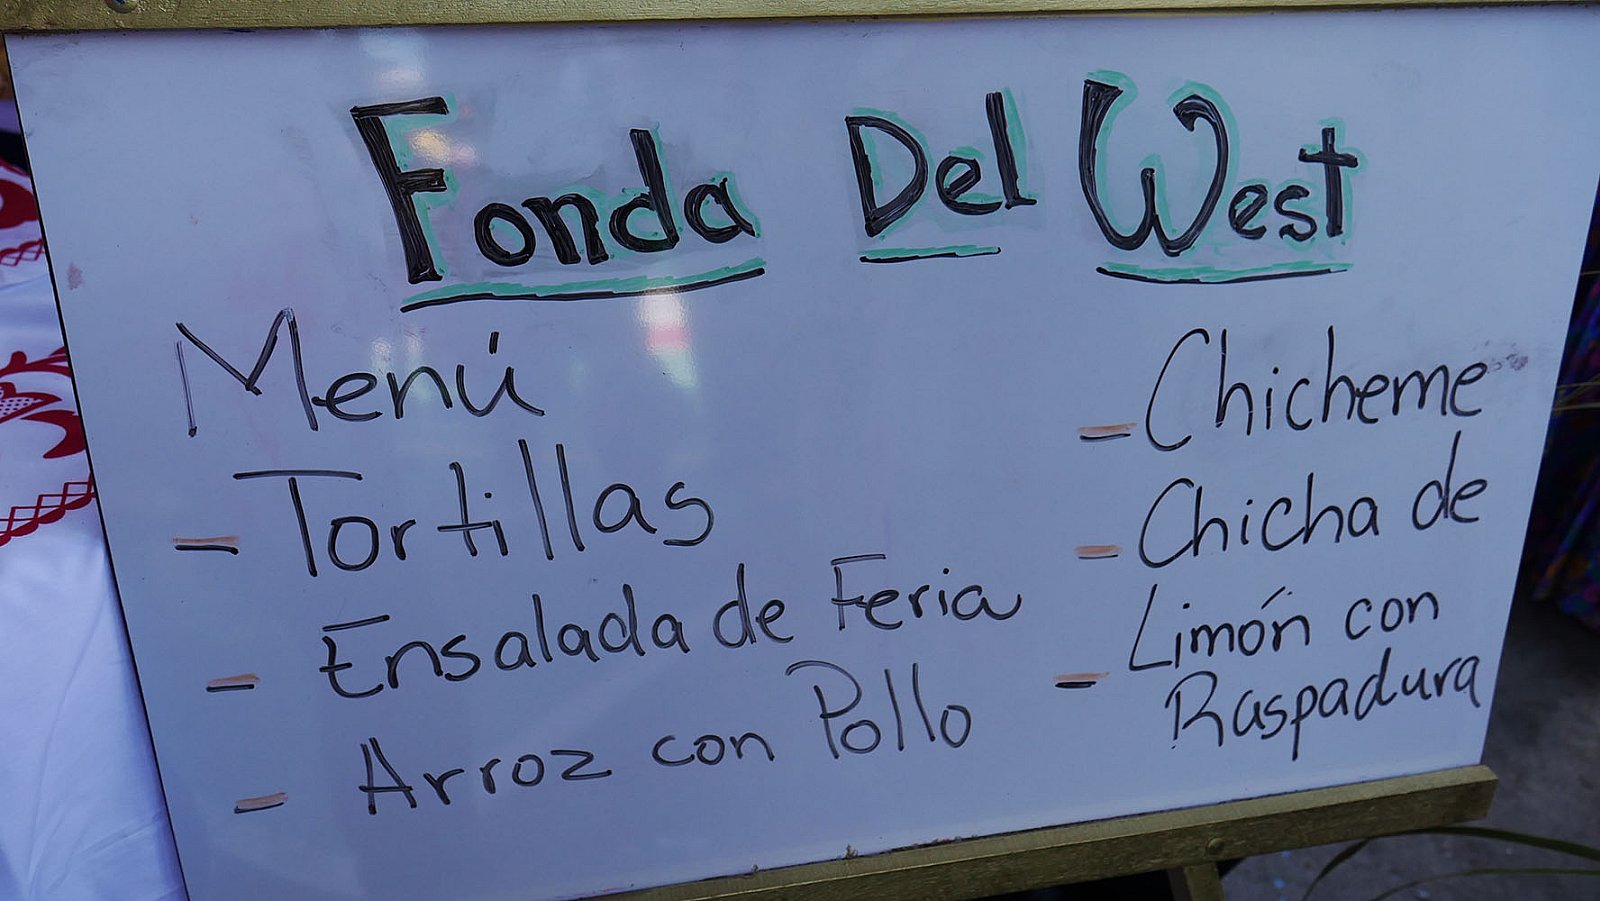 Fonda Del West
Menú
- Tortillas
- Ensalada de Feria
- Arroz con Pollo
- Chicheme
- Chicha de
- Limón con
Raspadura